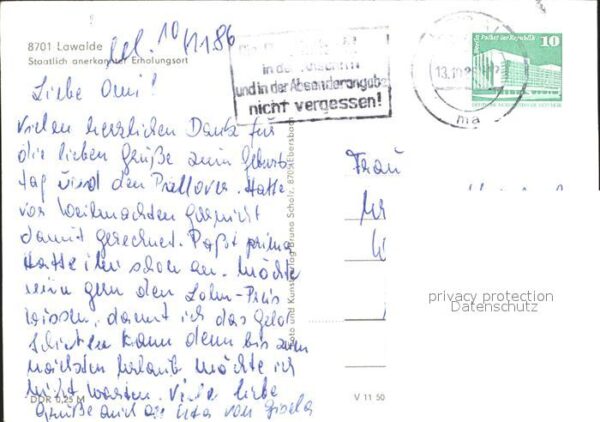 8701 Lawalde
Staatlich anerkannter Erholungsort
10/11 86
in der
und in der Absenderangabe
nicht vergessen!
Palast der Republik
10
DDR
13.10.
Liebe Omi!
Vielen herzlichen Dank für
die lieben Grüße zum Geburts
tag und den Pullover. Hatte
vor Weihnachten garnicht
damit gerechnet. Paßt prima
Hatte ihn schon an. Möchte
nun gern den Lohn-Preis
wissen, damit ich das Geld
schicken kann denn bis zum
nächsten Urlaub möchte ich
nicht warten. Viele liebe
Grüße auch an von Gisela
Frau
Foto und Kunstverlag Bruno Scholz, 8705 Ebersbach
privacy protection
Datenschutz
DDR 0,25 M
V 11 50